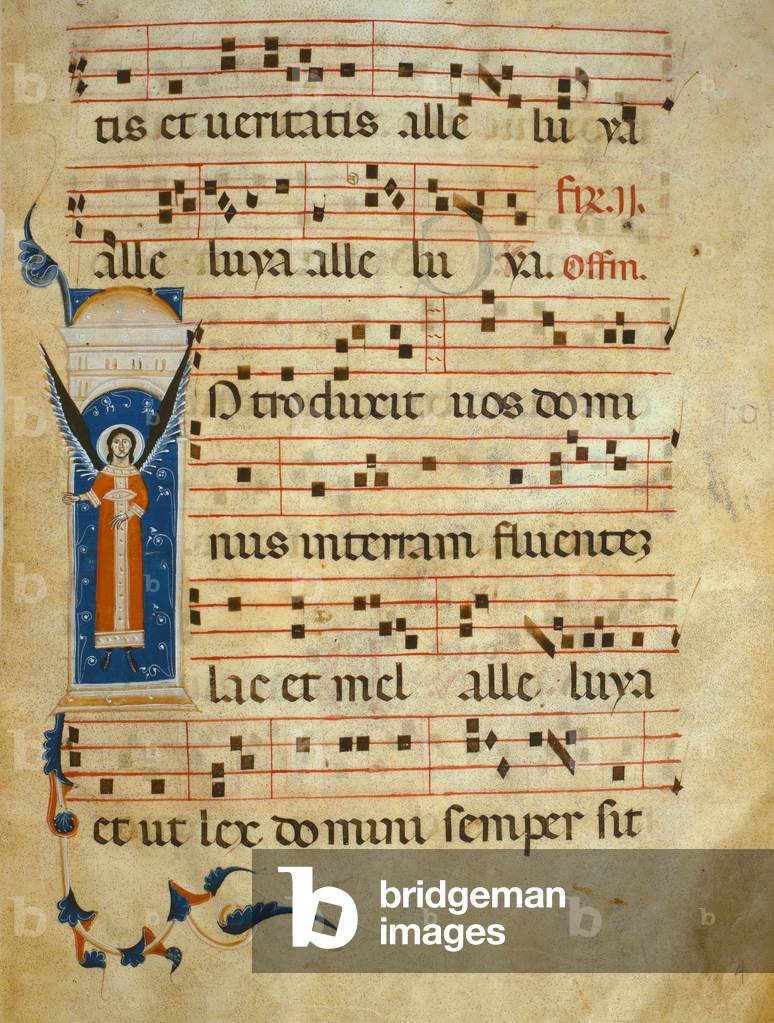 tis et ueritatis alle lu ya
alle luya alle lu ya. Offin.
Ntroduxit uos domi
nus interram fluentez
lac et mel alle luya
et ut lex domini semper sit
bridgeman
images